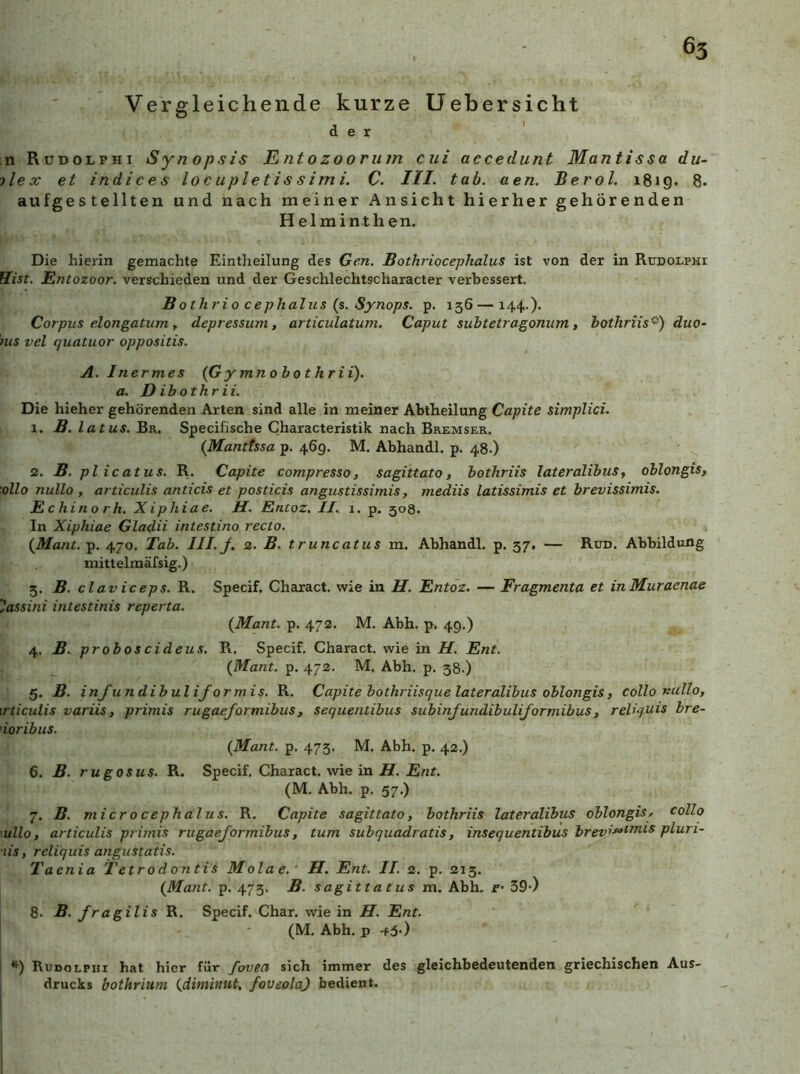 63
Vergleichende kurze Uebersicht
der
n Rudolphi Synopsis Entozoorum cui accedunt Mantissa du-
lex et indices locupletissimi. C. III. tab. aen. Berol. 1819. 8.
aufgestellten und nach meiner Ansicht hierher gehörenden
Helminthen.
Die hierin gemachte Eintheilung des Gen. Bothriocephalus ist von der in Rudolphi
Hist. Entozoor. verschieden und der Geschlechtscharacter verbessert.
Bothriocephalus (s. Synops. p. 136—144.).
Corpus elongatum, depressum, articulatum. Caput subtetragonum, bothriis*) duo-
us vel quatuor oppositis.
A. Inermes (Gymnobothrii).
a. Dibothrii.
Die hieher gehörenden Arten sind alle in meiner Abtheilung Capite simplici.
1. B. latus. Br. Specifische Characteristik nach Bremser.
(Mantissa p. 469. M. Abhandl. p. 48.)
2. B. plicatus. R. Capite compresso, sagittato, bothriis lateralibus, oblongis,
ollo nullo, articulis anticis et posticis angustissimis, mediis latissimis et brevissimis.
Echinorh. Xiphiae. H. Entoz. II. 1. p. 308.
In Xiphiae Gladii intestino recto.
(Mant. p. 470. Tab. III. f. 2. B. truncatus m. Abhandl. p. 37. — Rud. Abbildung
mittelmäfsig.)
3. B. claviceps. R. Specif. Charact. wie in H. Entoz. — Fragmenta et in Muraenae
assini intestinis reperta.
(Mant. p. 472. M. Abh. p. 49.)
4. B. proboscideus. R. Specif. Charact. wie in H. Ent.
(Mant. p. 472. M. Abh. p. 38.)
5. B. infundibuliformis. R. Capite bothriisque lateralibus oblongis, collo nullo,
rticulis variis, primis rugaeformibus, sequentibus subinfundibuliformibus, reliquis bre-
ioribus.
(Mant. p. 473. M. Abh. p. 42.)
6. B. rugosus. R. Specif. Charact. wie in H. Ent.
(M. Abh. p. 57.)
7. B. microcephalus. R. Capite sagittato, bothriis lateralibus oblongis, collo
ullo, articulis primis rugaeformibus, tum subquadratis, insequentibus brevissimis pluri-
is, reliquis angustatis.
Taenia Tetrodontis Molae. H. Ent. II. 2. p. 213.
(Mant. p. 473. B. sagittatus m. Abh. p. 39.)
8. B. fragilis R. Specif. Char. wie in H. Ent.
(M. Abh. p 43.)
*) Rudolphi hat hier für fovea sich immer des gleichbedeutenden griechischen Aus-
drucks bothrium (diminut. foveola) bedient.